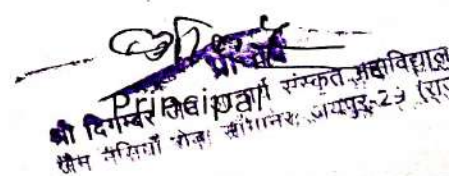 प्राचार्य
Principal
श्री दिगम्बर जैन आचार्य संस्कृत महाविद्यालय
जैन नसियाँ रोड सांगानेर, जयपुर-29 (राज